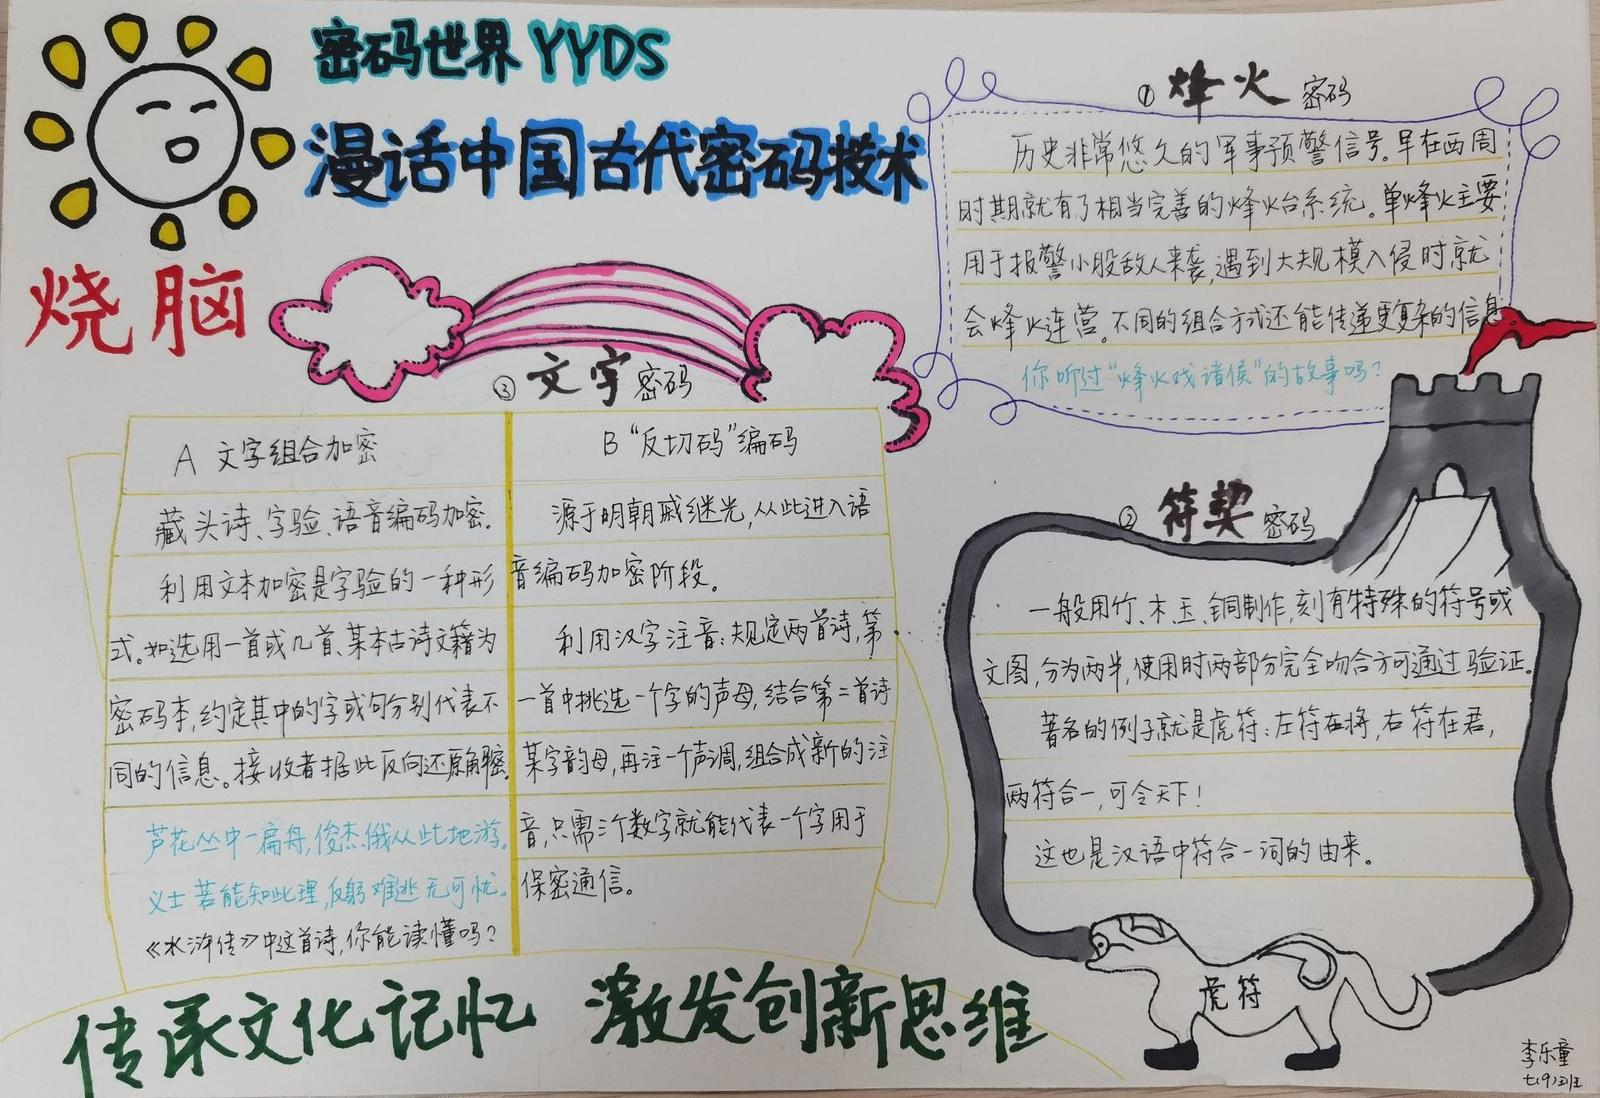 密码世界YYDS
漫话中国古代密码技术
烧脑
①烽火密码
历史非常悠久的军事预警信号。早在西周
时期就有了相当完善的烽火台系统。单烽火主要
用于报警小股敌人来袭,遇到大规模入侵时就
会烽火连营。不同的组合方式还能传递更复杂的信息
你听过“烽火戏诸侯”的故事吗?
②符契密码
一般用竹、木、玉、铜制作,刻有特殊的符号或
文图,分为两半,使用时两部分完全吻合方可通过验证。
著名的例子就是虎符:左符在将,右符在君,
两符合一,可令天下!
这也是汉语中符合一词的由来。
虎符
③文字密码
A 文字组合加密
藏头诗、字验、语音编码加密.
利用文本加密是字验的一种形
式。如选用一首或几首、某本古诗文籍为
密码本,约定其中的字或句分别代表不
同的信息。接收者据此反向还原解密.
芦花丛中一扁舟,俊杰俄从此地游。
义士若能知此理,反躬难逃无可忧。
《水浒传》中这首诗,你能读懂吗?
B “反切码”编码
源于明朝戚继光,从此进入语
音编码加密阶段。
利用汉字注音:规定两首诗,第
一首中挑选一个字的声母,结合第二首诗
某字韵母,再注一个声调,组合成新的注
音,只需三个数字就能代表一个字用于
保密通信。
传承文化记忆 激发创新思维
李乐童
七(9)班